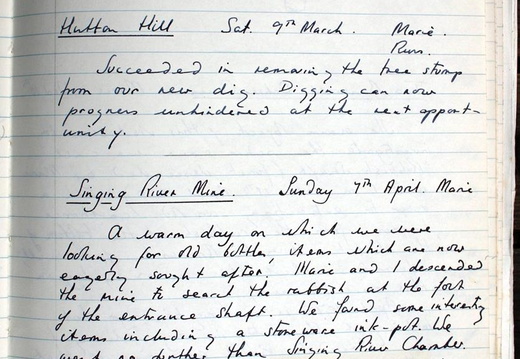 Hutton Hill Sat. 9th March. Marie.
Russ.
Succeeded in removing the tree stump
from our new dig. Digging can now
progress unhindered at the next opport-
unity.
Singing River Mine. Sunday 7th April. Marie
A warm day on which we were
looking for old bottles, items which are now
eagerly sought after. Marie and I descended
the mine to search the rubbish at the foot
of the entrance shaft. We found some interesting
items including a stoneware ink-pot. We
went no further than Singing River Chamber.